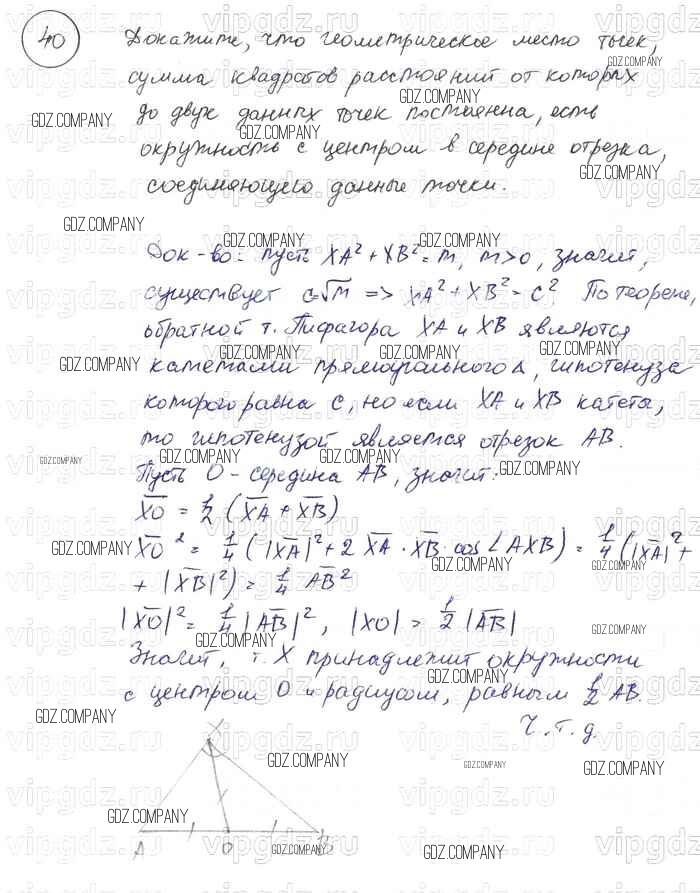 40
Докажите, что геометрическое место точек,
сумма квадратов расстояний от которых
до двух данных точек постоянна, есть
окружность с центром в середине отрезка,
соединяющего данные точки.
Док-во: пусть XA² + XB² = m, m>0, значит,
существует c=√m => XA² + XB² = c² По теореме,
обратной т. Пифагора XA и XB являются
катетами прямоугольного Δ, гипотенуза
которого равна c, но если XA и XB катеты,
то гипотенузой является отрезок AB.
Пусть O - середина AB, значит:
X̅O̅ = ½ (X̅A̅ + X̅B̅)
X̅O̅² = ¼ (|X̅A̅|² + 2 X̅A̅ · X̅B̅ · cos∠AXB) = ¼ (|X̅A̅|² +
+ |X̅B̅|²) = ¼ A̅B̅²
|X̅O̅|² = ¼ |A̅B̅|², |XO| = ½ |A̅B̅|
Значит, т. X принадлежит окружности
с центром O и радиусом, равным ½ AB.
Ч.т.д.
X
A O B
GDZ.COMPANY
vipgdz.ru